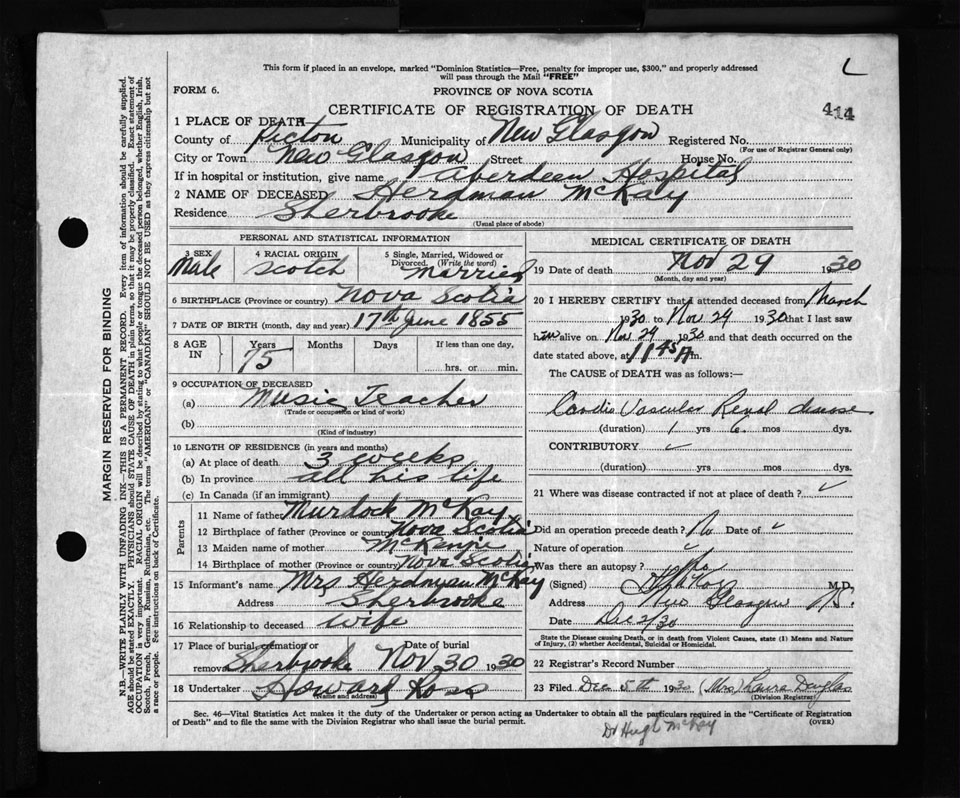 This form if placed in an envelope, marked "Dominion Statistics—Free, penalty for improper use, $300," and properly addressed
will pass through the Mail "FREE"
L
FORM 6.
PROVINCE OF NOVA SCOTIA
CERTIFICATE OF REGISTRATION OF DEATH
414
1 PLACE OF DEATH
County of Picton Municipality of New Glasgow Registered No.
(For use of Registrar General only)
City or Town New Glasgow Street House No.
If in hospital or institution, give name Aberdeen Hospital
2 NAME OF DECEASED Herdman McKay
Residence Sherbrooke
(Usual place of abode)
PERSONAL AND STATISTICAL INFORMATION
3 SEX Male
4 RACIAL ORIGIN Scotch
5 Single, Married, Widowed or Divorced. (Write the word) Married
6 BIRTHPLACE (Province or country) Nova Scotia
7 DATE OF BIRTH (month, day and year) 17th June 1855
8 AGE IN Years 75 Months Days If less than one day, hrs. or min.
9 OCCUPATION OF DECEASED
(a) Music Teacher
(Trade or occupation or kind of work)
(b)
(Kind of industry)
10 LENGTH OF RESIDENCE (in years and months)
(a) At place of death 3 weeks
(b) In province all his life
(c) In Canada (if an immigrant)
Parents
11 Name of father Murdock McKay
12 Birthplace of father (Province or country) Nova Scotia
13 Maiden name of mother McKenzie
14 Birthplace of mother (Province or country) Nova Scotia
15 Informant's name Mrs Herdman McKay
Address Sherbrooke
16 Relationship to deceased wife
17 Place of burial, cremation or removal Sherbrooke Date of burial Nov 30 1930
18 Undertaker Howard Ross
(Name and address)
MEDICAL CERTIFICATE OF DEATH
19 Date of death Nov 29 1930
(Month, day and year)
20 I HEREBY CERTIFY that I attended deceased from March
1930 to Nov 29 1930 that I last saw
him alive on Nov 29 1930 and that death occurred on the
date stated above, at 11 45 A m.
The CAUSE of DEATH was as follows:—
Cardio Vascular Renal disease
(duration) 1 yrs 6 mos dys.
CONTRIBUTORY ✓
(duration) yrs. mos. dys.
21 Where was disease contracted if not at place of death? ✓
Did an operation precede death? No Date of ✓
Nature of operation ✓
Was there an autopsy? No
(Signed) M.D.
Address New Glasgow NS.
Date Dec 2/30
State the Disease causing Death, or in death from Violent Causes, state (1) Means and Nature
of Injury, (2) whether Accidental, Suicidal or Homicidal.
22 Registrar's Record Number
23 Filed Dec 5th 1930 (Mrs) Laura Douglas
(Division Registrar)
Sec. 46—Vital Statistics Act makes it the duty of the Undertaker or person acting as Undertaker to obtain all the particulars required in the "Certificate of Registration
of Death" and to file the same with the Division Registrar who shall issue the burial permit.
(OVER)
Dr Hugh McKay
MARGIN RESERVED FOR BINDING
N.B.—WRITE PLAINLY WITH UNFADING INK—THIS IS A PERMANENT RECORD. Every item of information should be carefully supplied.
AGE should be stated EXACTLY. PHYSICIANS should STATE CAUSE OF DEATH in plain terms, so that it may be properly classified. Exact statement of
OCCUPATION is very important. RACIAL ORIGIN will be described by stating to what people or tongue the deceased person belonged, whether English, Irish,
Scotch, French, German, Russian, Ruthenian, etc. The terms "AMERICAN" or "CANADIAN" SHOULD NOT BE USED as they express citizenship but not
a race or people. See instructions on back of Certificate.